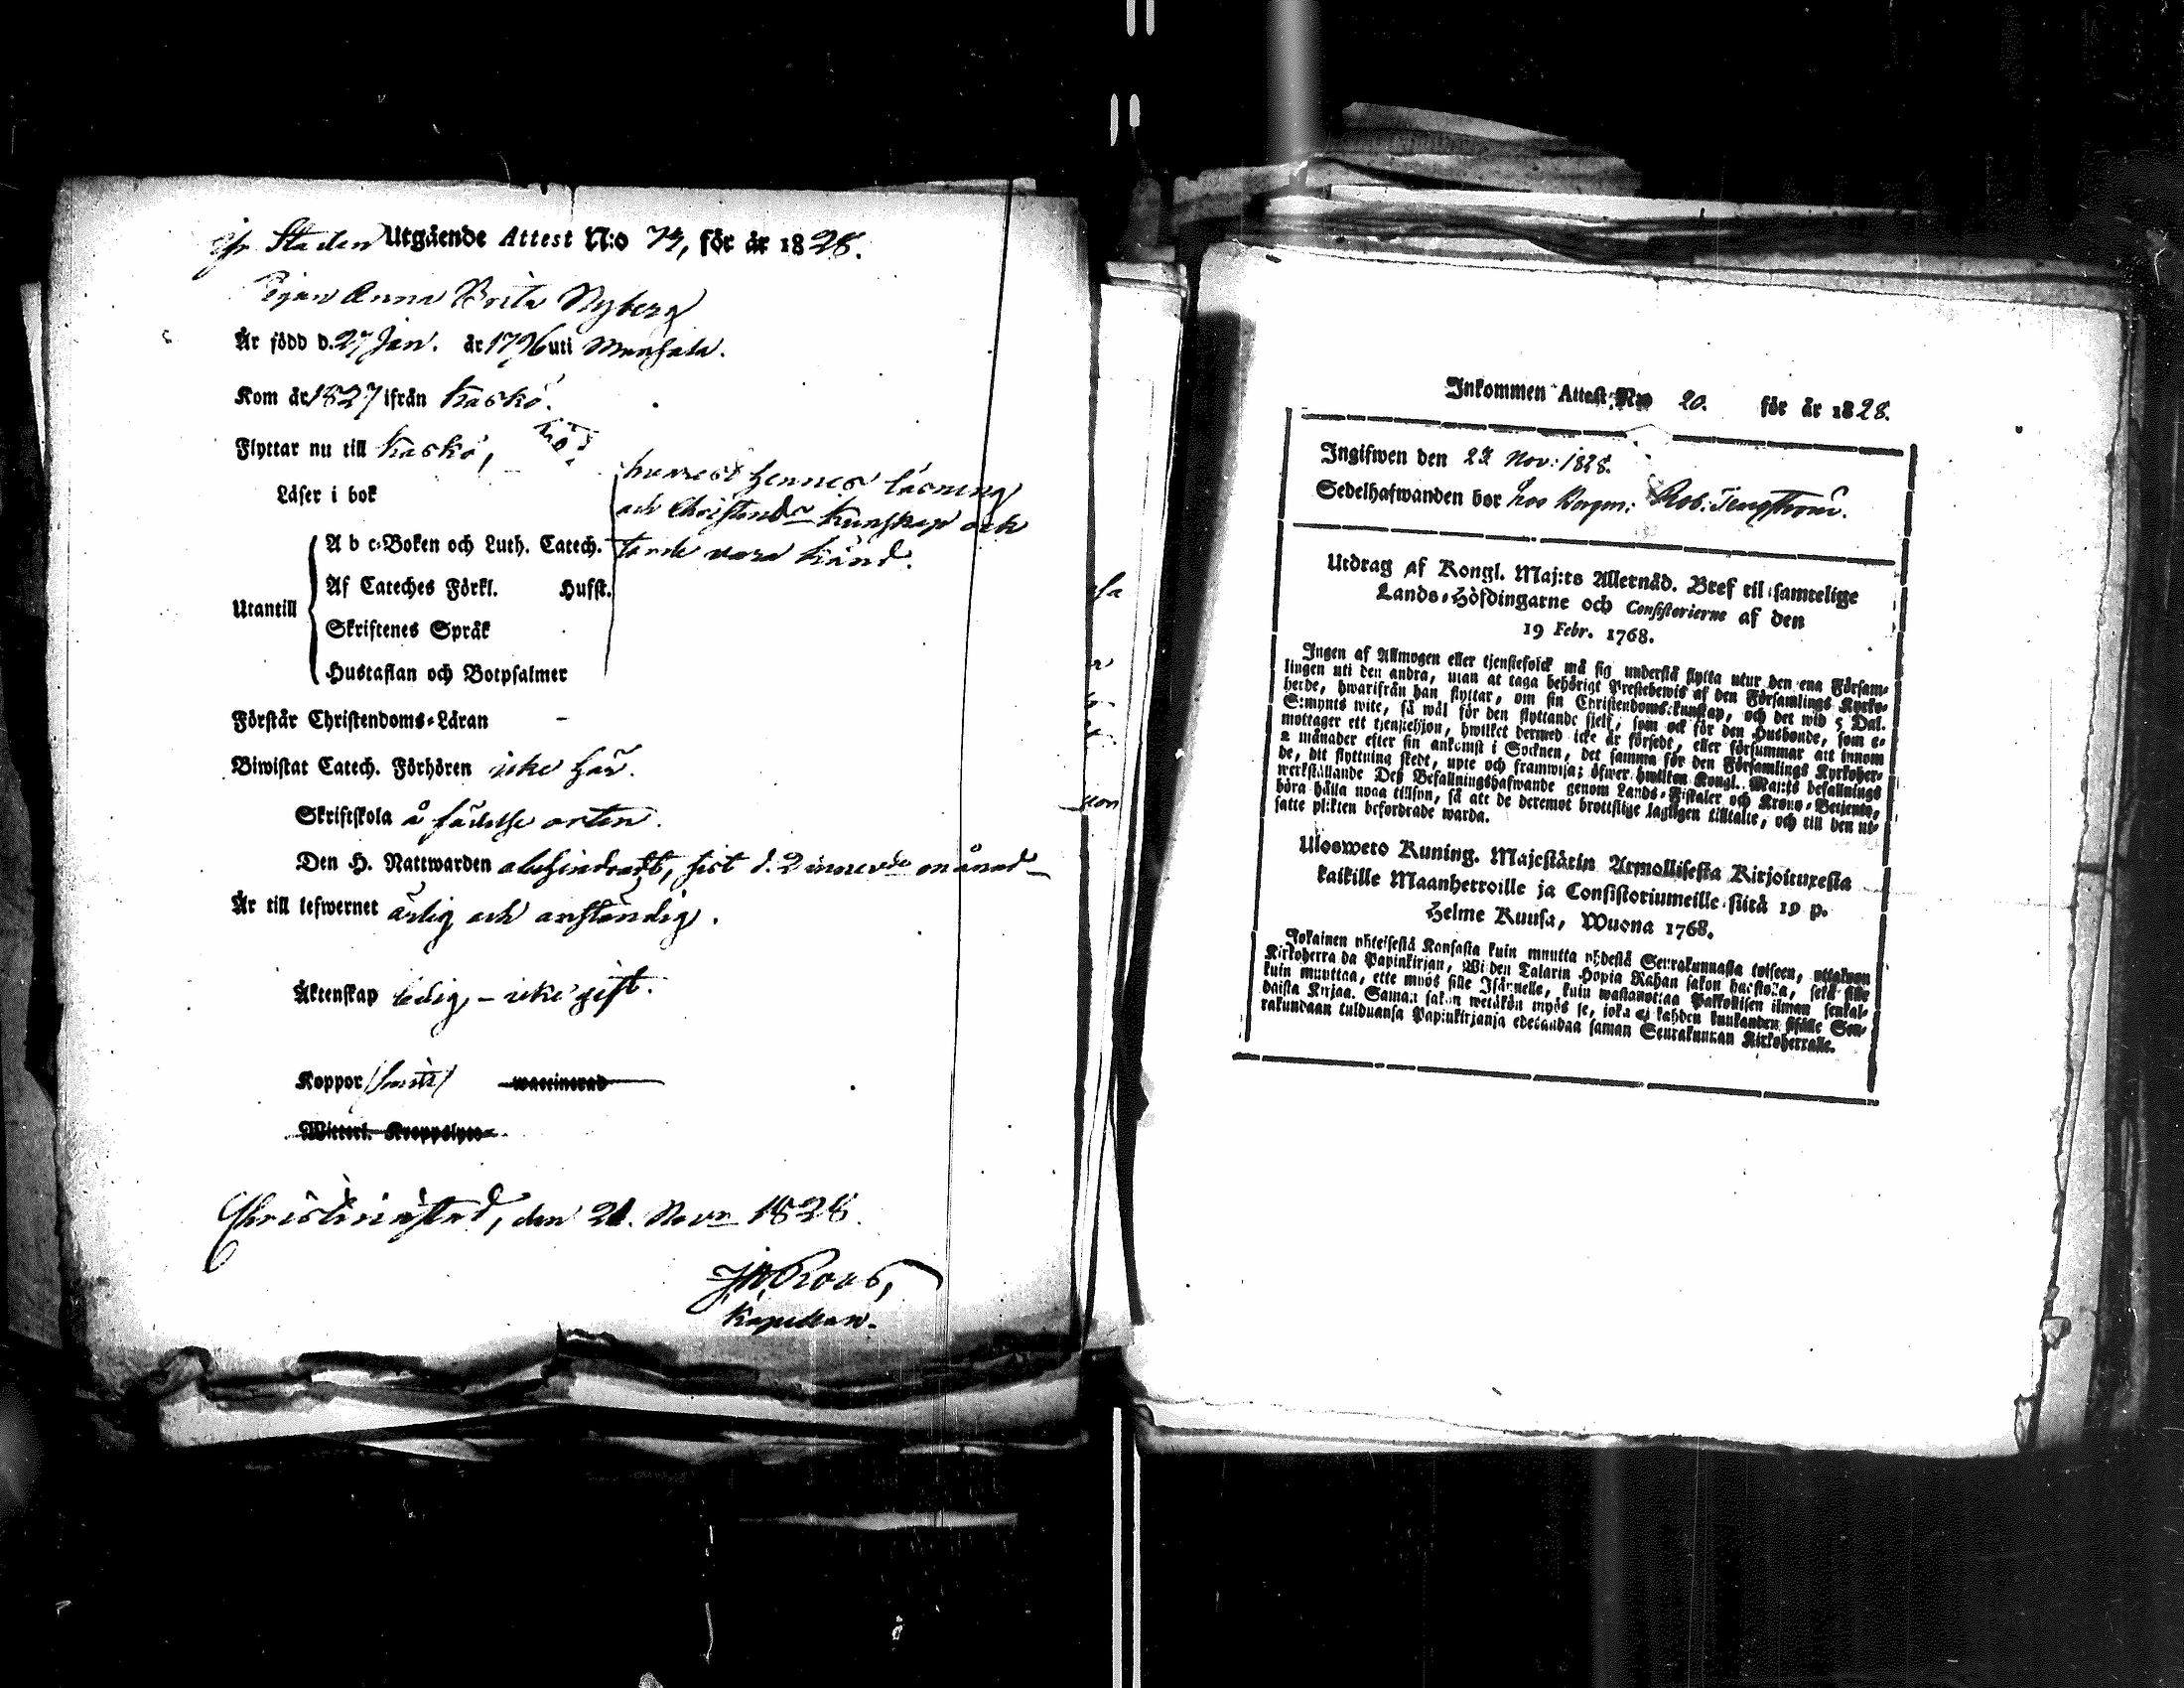 Staden Utgående Attest N:o 74, för år 1828.
Pigan Anna Brita Nyberg
Är född d. 27 Jan. år 1796 uti Munsala.
Kom år 1827 ifrån Kaskö.
Flyttar nu till Kaskö,
Läser i bok
hwarest hennes läsning
och Christend:s Kunskap ock
torde vara känd.
Utantill
A b c-Boken och Luth. Catech.
Af Cateches Förkl. Hufst.
Skriftenes Språk
Hustaflan och Botpsalmer
Förstår Christendoms-Läran –
Biwistat Catech. Förhören icke här.
Skriftskola å födelse orten.
Den H. Nattwarden obehindradt, sist d. 2 innev:de månad
Är till lefwernet ärlig och anständig.
Äktenskap ledig – icke gift.
Koppor haft waccinerad
Witterl. Kroppslyte
Christinestad, den 21. Nov. 1828.
Kapellan.
Inkommen Attest N:o 20. för år 1828.
Ingifwen den 23 Nov: 1828.
Sedelhafwanden bor hos Borgm: Rob: Tengström.
Utdrag af Kongl. Maj:ts Allernåd. Bref til samtelige
Lands-Höfdingarne och Consistorierne af den
19 Febr. 1768.
Ingen af Allmogen eller tjenstefolck må sig understå flytta utur den ena Försam-
lingen uti den andra, utan at taga behörigt Prestebewis af den Församlings Kyrko-
herde, hwarifrån han flyttar, om sin Christendoms-kunskap, och det wid 5 Dal.
S:mynts wite, så wäl för den flyttande sjelf, som ock för den Husbonde, som e-
mottager ett tjenstehjon, hwilket dermed icke är försedt, eller försummar att innom
2 månader efter sin ankomst i Socknen, det samma för den Församlings Kyrkoher-
de, dit flyttning skedt, upte och framwisa; öfwer hwilken Kongl. Maj:ts befallnings
werkställande Deß Befallningshafwande genom Lands-Fiskaler och Krono-Betjente,
böra hålla noga tillsyn, så att de deremot brottslige lagligen tilltalte, och till den ut-
satte plikten befordrade warda.
Ulosweto Kuning. Majestätin Armollisesta Kirjoituxesta
kaikille Maanherroille ja Consistoriumeille siitä 19 p.
Helme Kuusa, Wuona 1768.
Jokainen yhteisestä Kansasta kuin muutta yhdestä Seurakunnasta toiseen, ottakoon
Kirkoherra da Papinkirjan, Wiiden Talarin Hopia Rahan sakon haastolla, sekä sille
kuin muuttaa, ette myös sille Isännelle, kuin wastanottaa Palkollisen ilman senkal-
daista Kirjaa. Saman sakon wetäkön myös se, joka ei kahden kuukauden sisälle Seu-
rakundaan tulduansa Papinkirjansa edesandaa saman Seurakunnan Kirkoherralle.